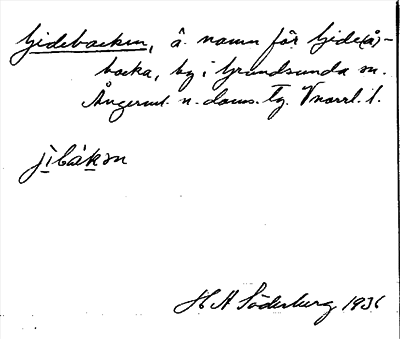 Gidebacken, â. namn för Gide(å)-
backa, by i Grundsunda sn.
Ångerml. n. doms. Tg. Vnorrl. l.
jìbák̠ən
H A Söderberg 1936